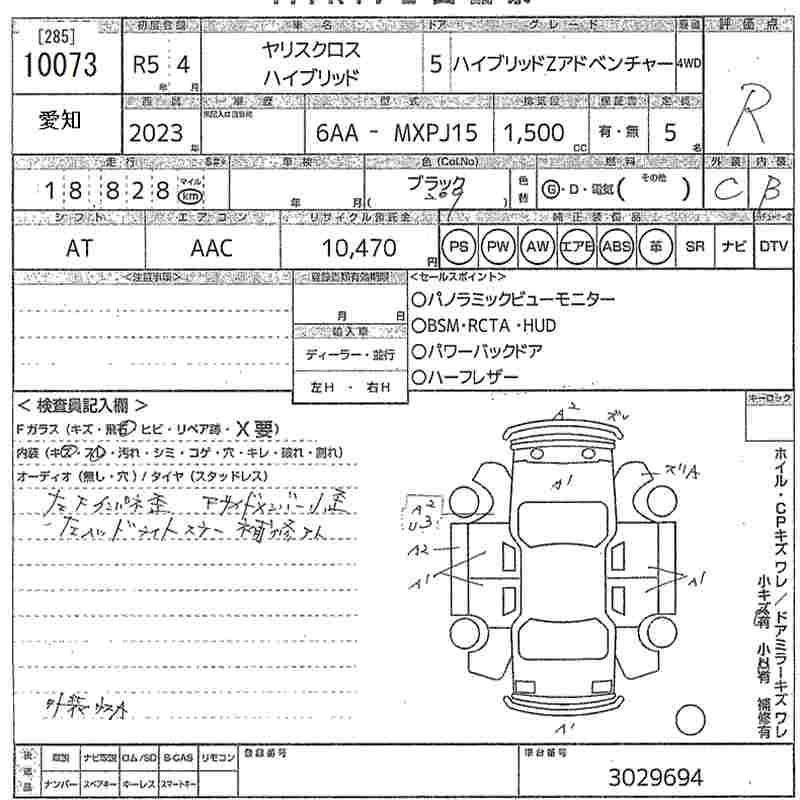 [285]
10073
初度登録
車名
ドア
グレード
評価点
R5 4
年 月
ヤリスクロス
ハイブリッド
5
ハイブリッドZアドベンチャー
4WD
R
愛知
車歴
型式
排気量
保証書
定員
2023
年
6AA - MXPJ15
1,500
CC
有・無
5
名
走行
車検
色(Col.No)
燃料
外装
内装
18828
マイル
km
年 月
ブラック
209
色替
G・D・電気( その他 )
C
B
シフト
エアコン
リサイクル預託金
純正装備品
AT
AAC
10,470
円
PS PW AW エアB ABS 革 SR ナビ DTV
<注意事項>
登録書類有効期限
<セールスポイント>
月 日
○パノラミックビューモニター
輸入車
○BSM・RCTA・HUD
ディーラー・並行
○パワーバックドア
左H ・ 右H
○ハーフレザー
キーロック
< 検査員記入欄 >
Fガラス(キズ・飛石・ヒビ・リペア跡・X要)
内装(キズ・スレ・汚れ・シミ・コゲ・穴・キレ・破れ・割れ)
オーディオ(無し・穴)/タイヤ(スタッドレス)
左ヘッドライトステー 補修スト
A2
ズレ
A1
ズレA
A2
U3
A2
A1
A1
A1
ホイル・CPキズ ワレ/ドアミラーキズ ワレ
小キズ有 小凹有 補修有
後送品
取説 ナビ取説 ロム/SD B-CAS リモコン
ナンバー スペアキー キーレス スマートキー
登録番号
車台番号
3029694